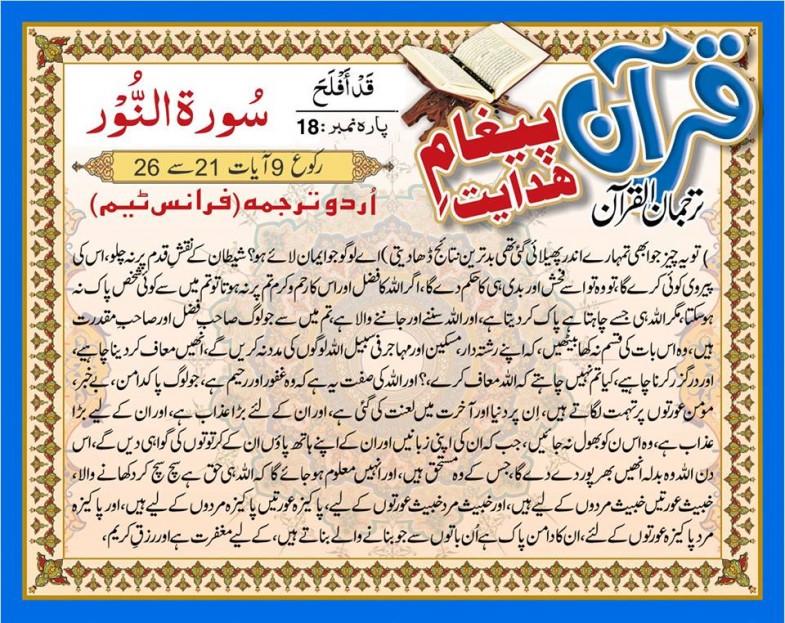 قرآن
پیغامِ
ھدایت
ترجمان القرآن
قَدْ أَفْلَحَ
پارہ نمبر :18
سُورۃ النُّوْر
رکوع 9 آیات 21 سے 26
اُردو ترجمہ (فرانس ٹیم)
) تو یہ چیز جو ابھی تمہارے اندر پھیلائی گئی تھی بدترین نتائج دکھا دیتی) اے لوگو جو ایمان لائے ہو؟ شیطان کے نقشِ قدم پر نہ چلو، اس کی
پیروی کوئی کرے گا، تو وہ تو اسے فحش اور بدی ہی کا حکم دے گا، اگر اللہ کا فضل اور اس کا رحم و کرم تم پر نہ ہوتا تو تم میں سے کوئی شخص پاک نہ
ہو سکتا، مگر اللہ ہی جسے چاہتا ہے پاک کر دیتا ہے، اور اللہ سننے اور جاننے والا ہے، تم میں سے جو لوگ صاحبِ فضل اور صاحبِ مقدرت
ہیں، وہ اس بات کی قسم نہ کھا بیٹھیں، کہ اپنے رشتہ دار، مسکین اور مہاجر فی سبیل اللہ لوگوں کی مدد نہ کریں گے، انھیں معاف کر دینا چاہیے،
اور درگزر کرنا چاہیے، کیا تم نہیں چاہتے کہ اللہ معاف کرے،؟ اور اللہ کی صفت یہ ہے کہ وہ غفور اور رحیم ہے، جو لوگ پاکدامن، بے خبر،
مؤمن عورتوں پر تہمت لگاتے ہیں، اِن پر دنیا اور آخرت میں لعنت کی گئی ہے، اور ان کے لئے بڑا عذاب ہے، اور ان کے لیے بڑا
عذاب ہے، وہ اس دن کو بھول نہ جائیں، جب کہ ان کی اپنی زبانیں اور ان کے اپنے ہاتھ پاؤں ان کے کرتوتوں کی گواہی دیں گے، اس
دن اللہ وہ بدلہ انھیں بھرپور دے دے گا، جس کے وہ مستحق ہیں، اور انہیں معلوم ہو جائے گا کہ اللہ ہی حق ہے سچ سچ کر دکھانے والا،
خبیث عورتیں خبیث مردوں کے لیے ہیں، اور خبیث مرد خبیث عورتوں کے لیے، پاکیزہ عورتیں پاکیزہ مردوں کے لیے ہیں، اور پاکیزہ
مرد پاکیزہ عورتوں کے لئے، ان کا دامن پاک ہے اُن باتوں سے جو بنانے والے بناتے ہیں، کے لیے مغفرت ہے اور رزقِ کریم،